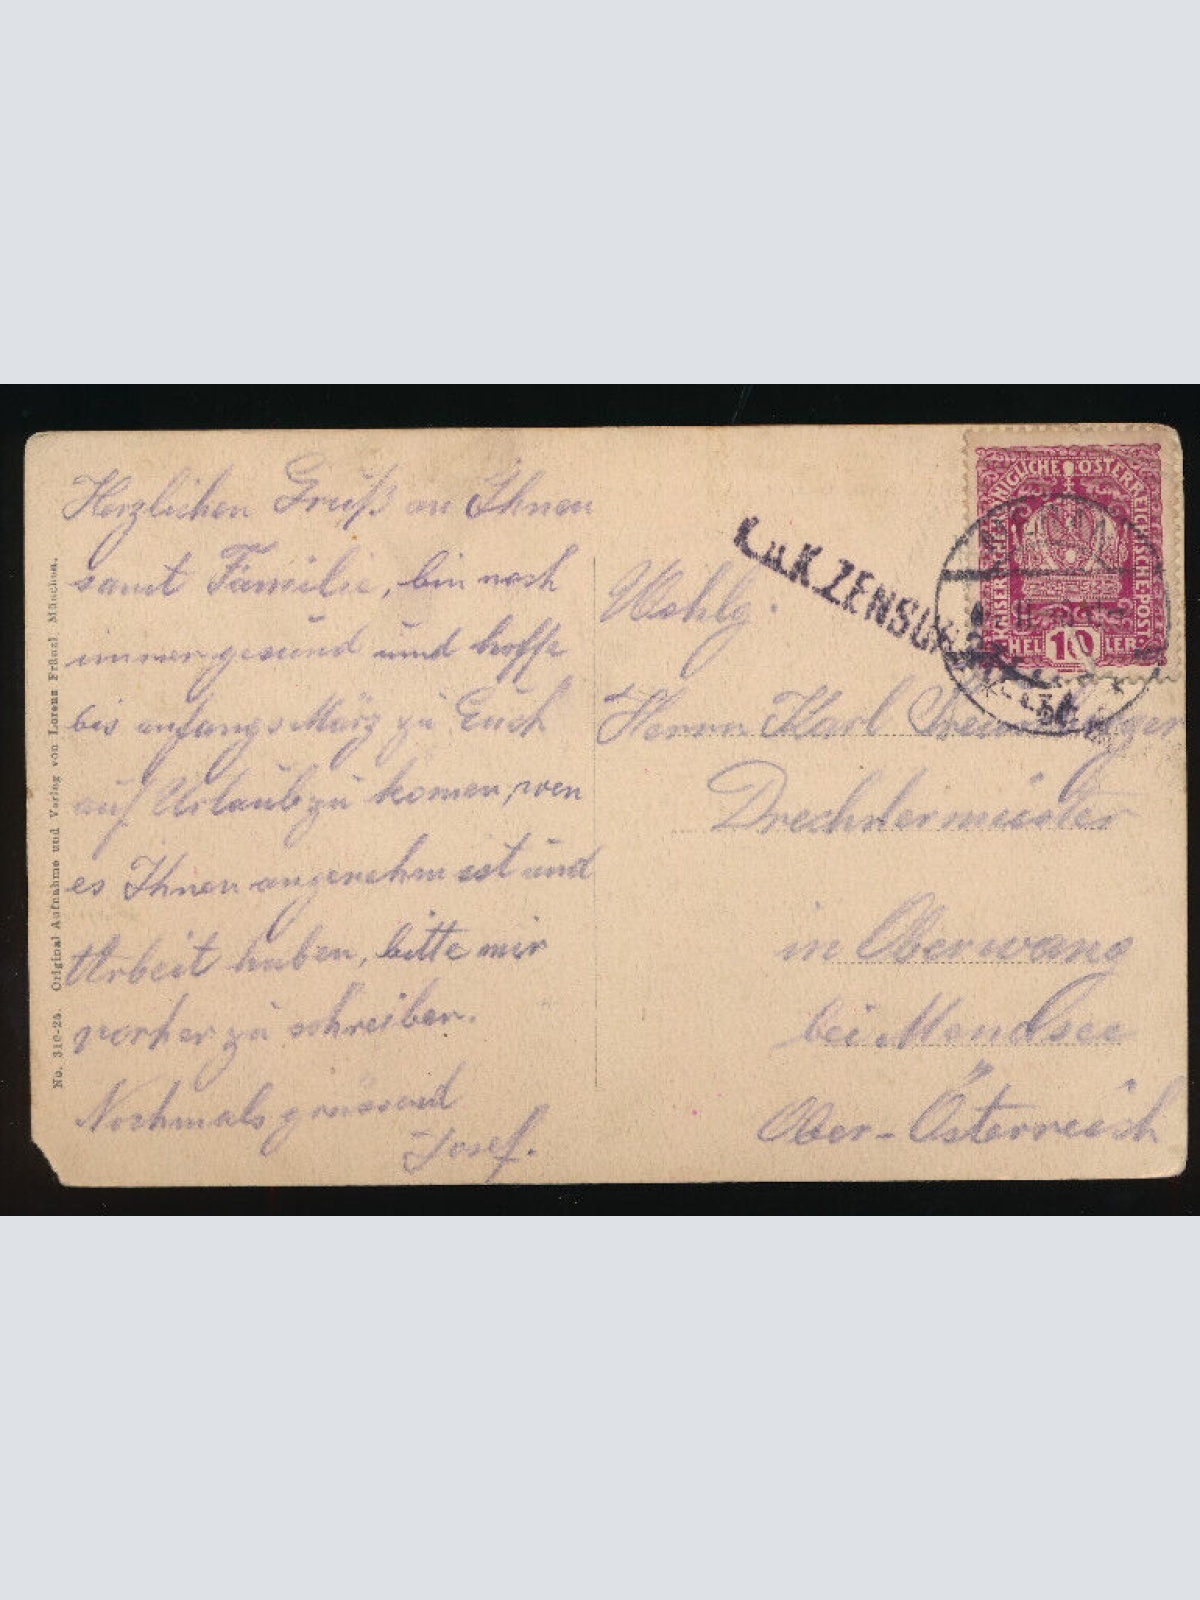 Herzlichen Gruß an Ihnen
samt Familie, bin noch
immer gesund und hoffe
bis anfangs März zu Euch
auf Urlaub zu komen, wen
es Ihnen angenehm ist und
Arbeit haben, bitte mir
vorher zu schreiben.
Nochmals grüssend
Josef.
No. 310-25. Original Aufnahme und Verlag von Lorenz Fränzl, München.
K.u.K. ZENSUR
KAISERLICHE KÖNIGLICHE ÖSTERREICHISCHE POST
10
HELLER
Wohlg.
Herrn Karl
Drechslermeister
in Oberwang
bei Mondsee
Ober-Österreich